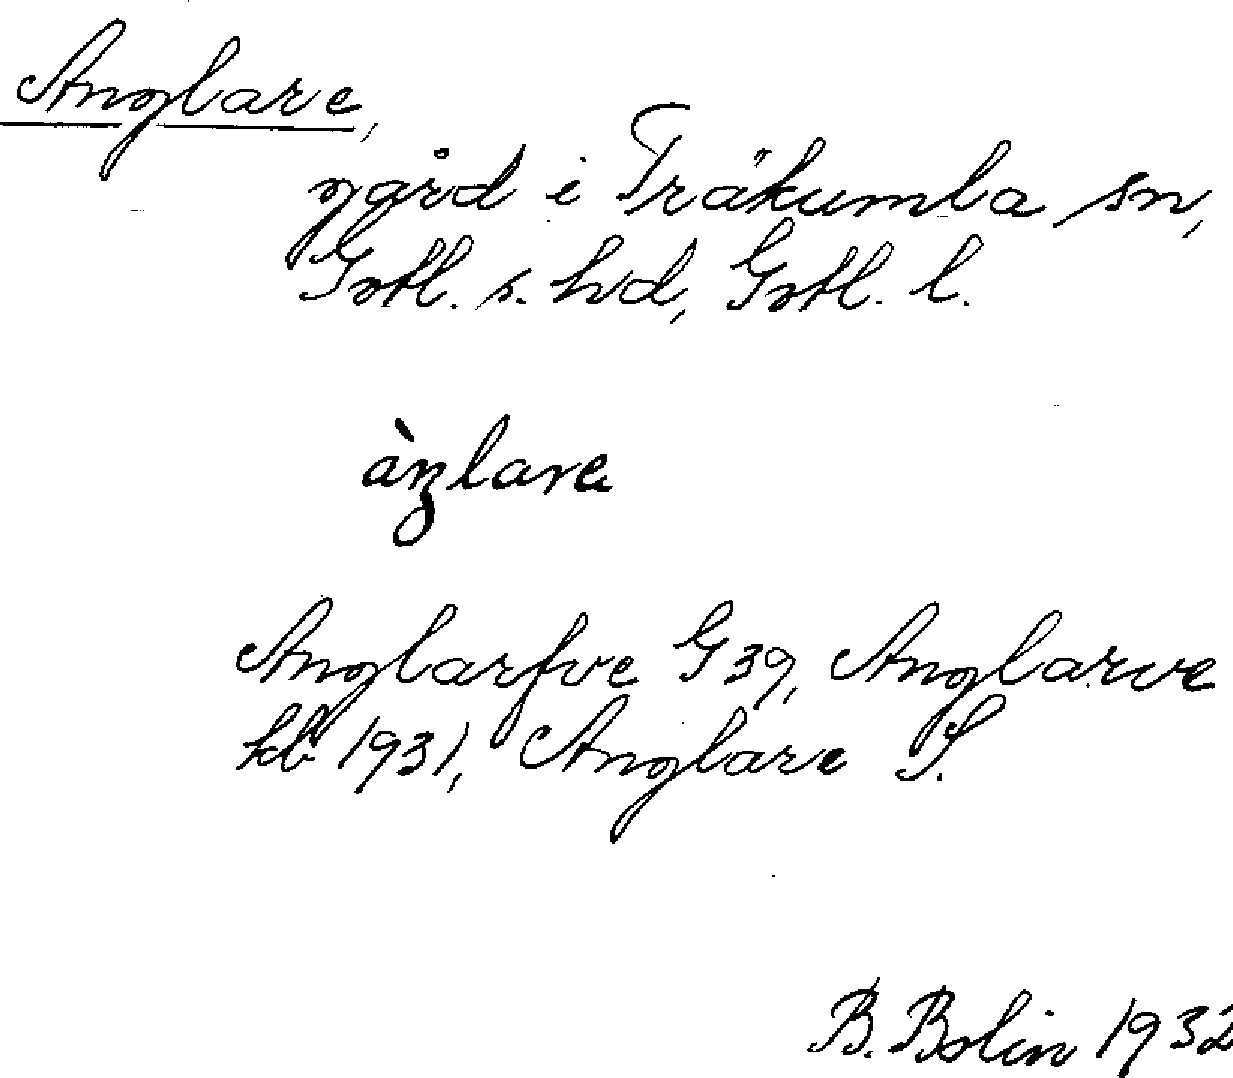 Anglare,
gård i Träkumla sn,
Gotl. s. hd, Gotl. l.
àŋlare
Anglarfve G 39, Anglarve
kb 1931, Anglare S.
B. Bolin 1932